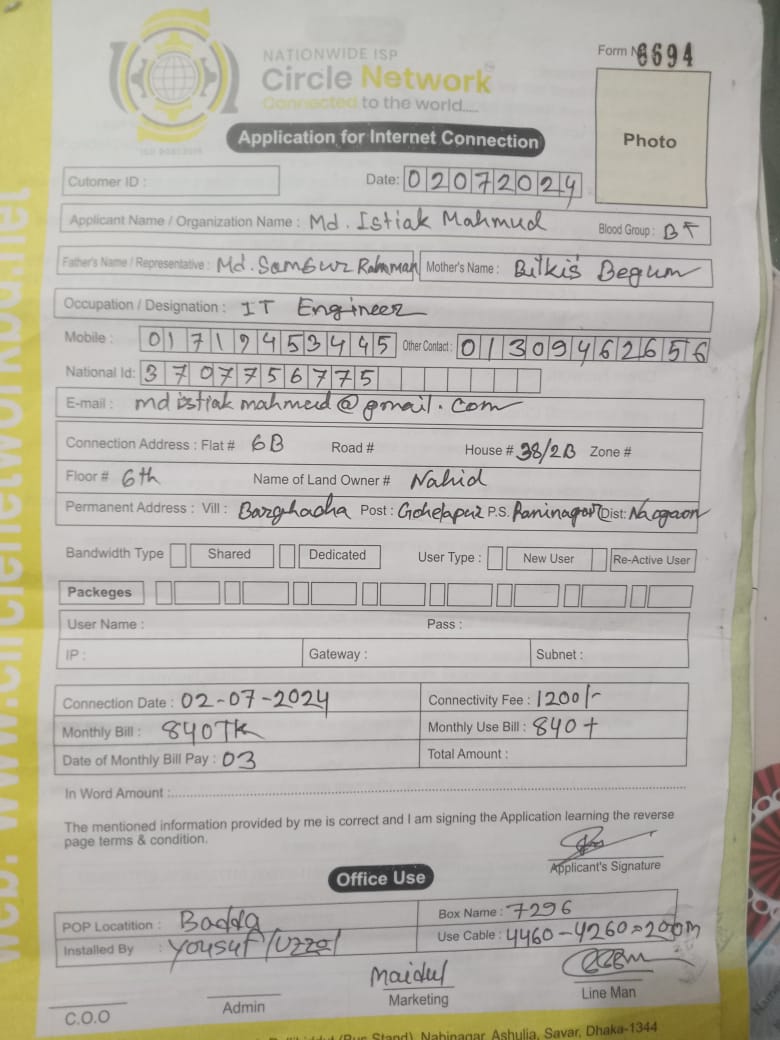 NATIONWIDE ISP
Circle Network
Connected to the world.....
Form 6694
Application for Internet Connection
Photo
Cutomer ID :
Date: 02072024
Applicant Name / Organization Name : Md. Istiak Mahmud Blood Group : B+
Father's Name / Representative : Md. Samsur Rahman Mother's Name : Bilkis Begum
Occupation / Designation : IT Engineer
Mobile : 01719453445 Other Contact : 01309462656
National Id: 3707756775
E-mail : mdistiakmahmud@gmail.com
Connection Address : Flat # 6B Road # House # 38/2B Zone #
Floor # 6th Name of Land Owner # Nahid
Permanent Address : Vill : Post : P.S. Raninagar Dist: Naogaon
Bandwidth Type Shared Dedicated User Type : New User Re-Active User
Packeges
User Name : Pass :
IP : Gateway : Subnet :
Connection Date : 02-07-2024 Connectivity Fee : 1200/-
Monthly Bill : 840TK Monthly Use Bill : 840
Date of Monthly Bill Pay : 03 Total Amount :
In Word Amount :
The mentioned information provided by me is correct and I am signing the Application learning the reverse
page terms & condition.
Applicant's Signature
Office Use
POP Locatition : Badda Box Name : 7296
Installed By : Yousuf / Uzzal Use Cable : 4460-4260=200m
Maidul
C.O.O Admin Marketing Line Man
(Bus Stand), Nabinagar, Ashulia, Savar, Dhaka-1344
web: www.circlenetworkbd.net